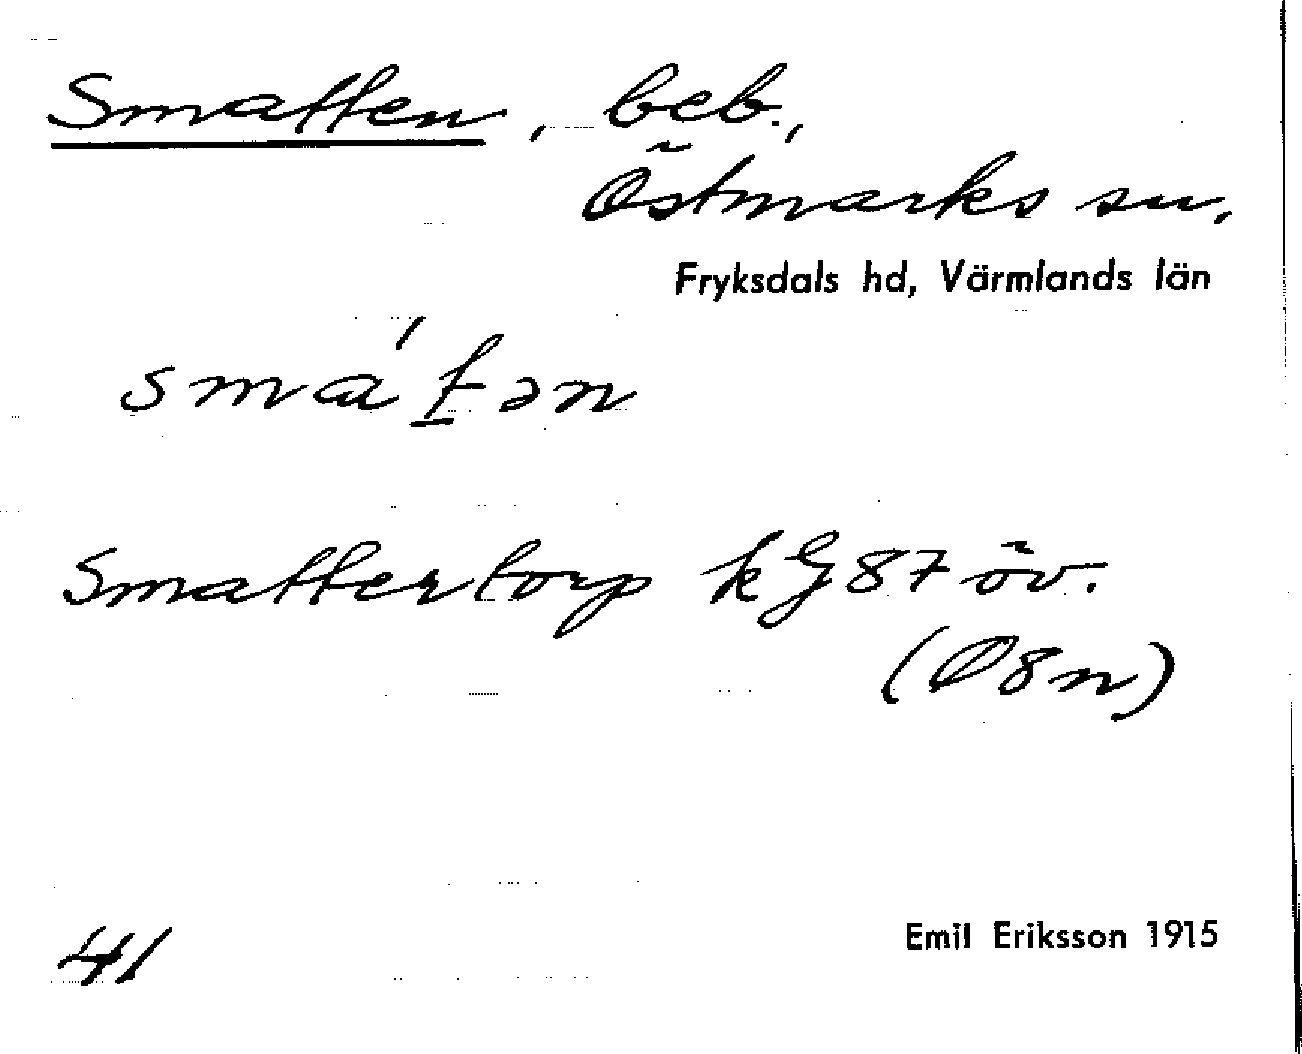 Smatten, beb.,
Östmarks sn,
Fryksdals hd, Värmlands län
smát̲ən
Smattertorp kG 87 öv.
(Ø8n)
41
Emil Eriksson 1915